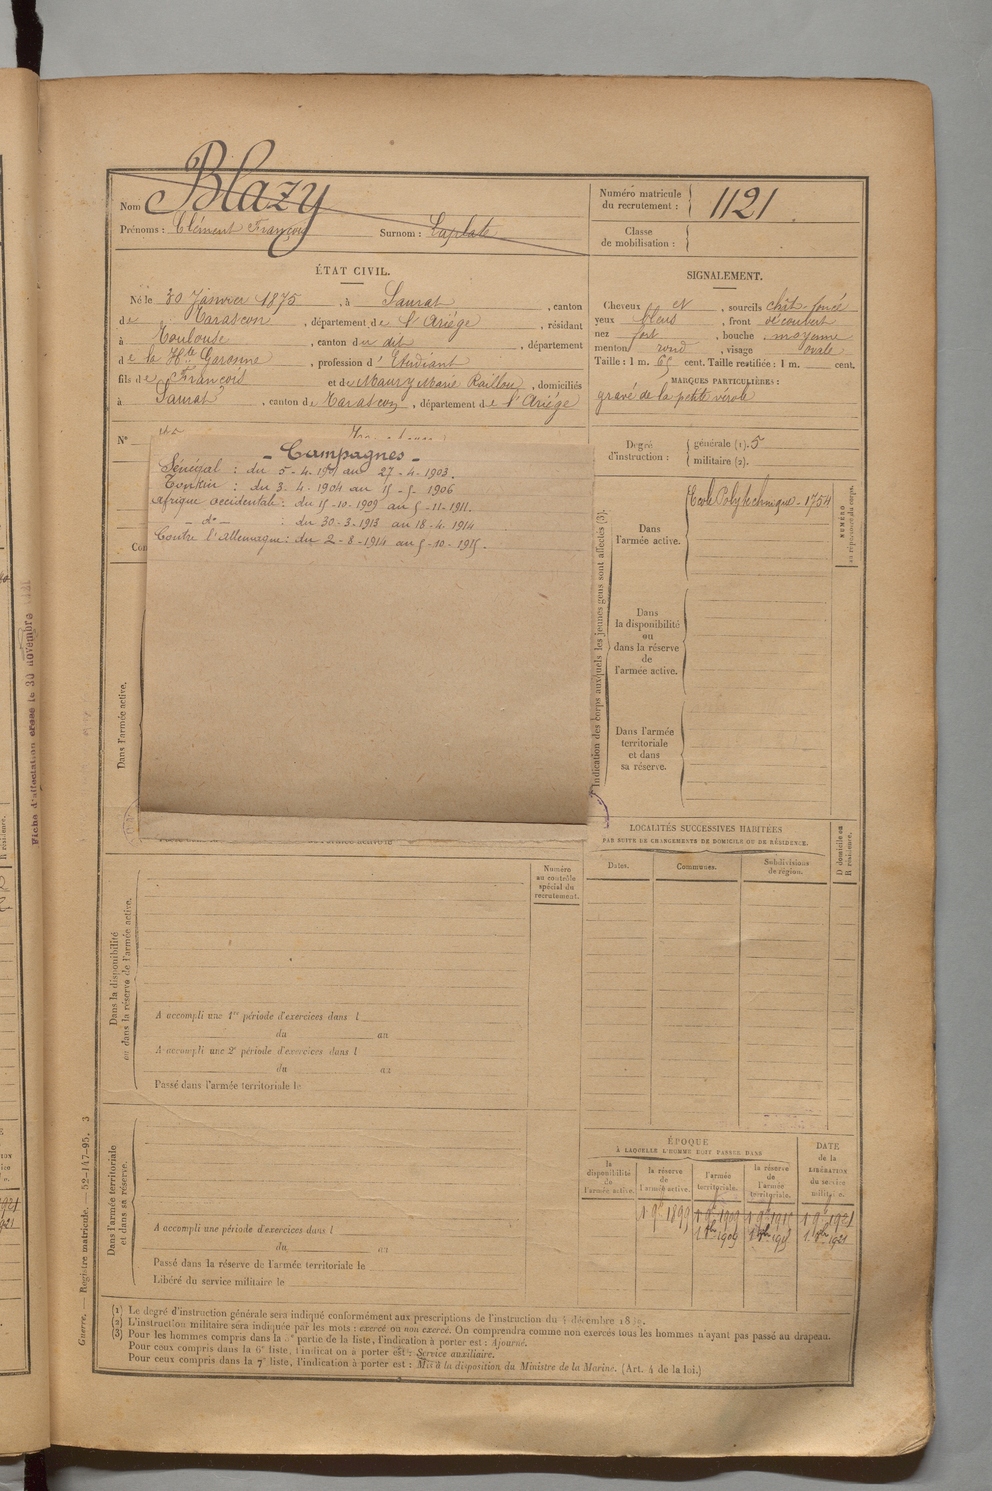 Nom Blazy
Prénoms : Clément François Surnom : Laplate
Numéro matricule du recrutement : 1121
Classe de mobilisation :
ÉTAT CIVIL.
Né le 30 Janvier 1875, à Saurat, canton
de Tarascon, département de l'Ariège, résidant
à Toulouse, canton du dit, département
de la Hte Garonne, profession d'Etudiant
fils de François et de Maury Marie Raillou, domiciliés
à Saurat, canton de Tarascon, département de l'Ariège
SIGNALEMENT.
Cheveux et, sourcils chât-foncé
yeux bleus, front découvert
nez fort, bouche moyenne
menton rond, visage ovale
Taille : 1 m. 65 cent. Taille rectifiée : 1 m. cent.
MARQUES PARTICULIÈRES :
gravé de la petite vérole
N°
Degré d'instruction : générale (1). 5
militaire (2).
- Campagnes -
Sénégal : du 5-4-1901 au 27-4-1903.
Tonkin : du 3-4-1904 au 15-5-1906
Afrique occidentale : du 15-10-1909 au 5-11-1911.
- do - : du 30-3-1913 au 18-4-1914
Contre l'Allemagne : du 2-8-1914 au 5-10-1915.
Con
Dans l'armée active.
Indication des corps auxquels les jeunes gens sont affectés (3).
Dans l'armée active.
Ecole Polytechnique - 1754
NUMÉRO au répertoire du corps.
Dans la disponibilité ou dans la réserve de l'armée active.
Dans l'armée territoriale et dans sa réserve.
LOCALITÉS SUCCESSIVES HABITÉES
PAR SUITE DE CHANGEMENTS DE DOMICILE OU DE RÉSIDENCE.
Dates. Communes. Subdivisions de région. D domicile ou R résidence.
Numéro au contrôle spécial du recrutement.
Dans la disponibilité ou dans la réserve de l'armée active.
A accompli une 1re période d'exercices dans l
du au
A accompli une 2e période d'exercices dans l
du au
Passé dans l'armée territoriale le
Dans l'armée territoriale et dans sa réserve.
A accompli une période d'exercices dans l
du au
Passé dans la réserve de l'armée territoriale le
Libéré du service militaire le
ÉPOQUE
À LAQUELLE L'HOMME DOIT PASSER DANS
la disponibilité de l'armée active. la réserve de l'armée active. l'armée territoriale. la réserve de l'armée territoriale.
DATE de la LIBÉRATION du service militaire.
1 9e 1899 1 9e 1909 1 9e 1915 1 9e 1921
1 8bre 1909 1 8bre 1915 1 8bre 1921
(1) Le degré d'instruction générale sera indiqué conformément aux prescriptions de l'instruction du 4 décembre
(2) L'instruction militaire sera indiquée par les mots : exercé ou non exercé. On comprendra comme non exercés tous les hommes n'ayant pas passé au drapeau.
(3) Pour les hommes compris dans la partie de la liste, l'indication à porter est : Ajourné.
Pour ceux compris dans la 6e liste, l'indication à porter est : Service auxiliaire.
Pour ceux compris dans la 7e liste, l'indication à porter est : Mis à la disposition du Ministre de la Marine. (Art. 4 de la loi.)
Guerre. — Registre matricule. — 52-147-95. 3
Fiche d'affectation créée le 30 novembre